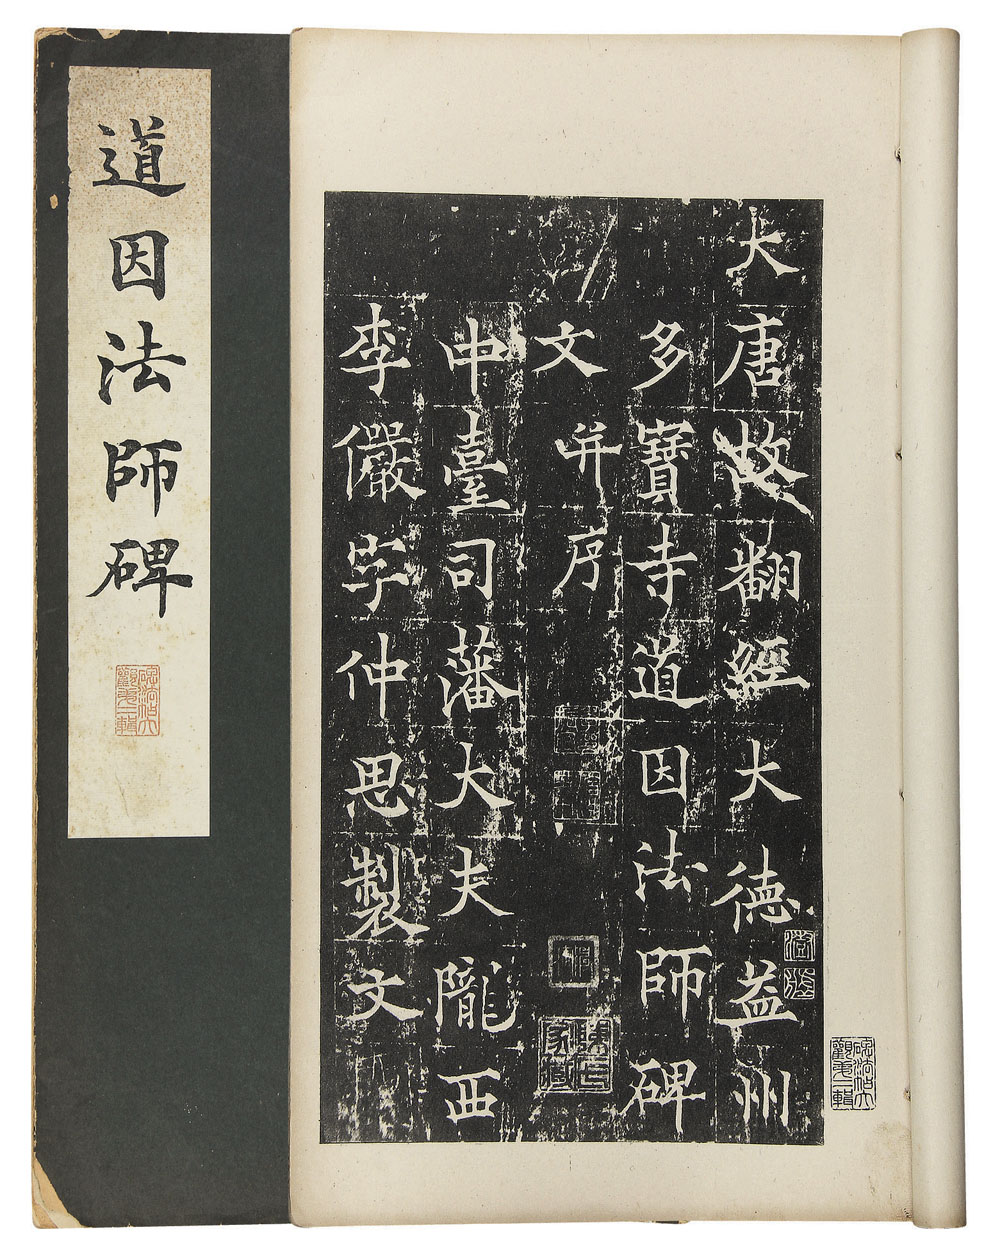 道因法師碑
大唐故翻經大德益州
多寶寺道因法師碑
文并序
中臺司藩大夫隴西
李儼字仲思製文